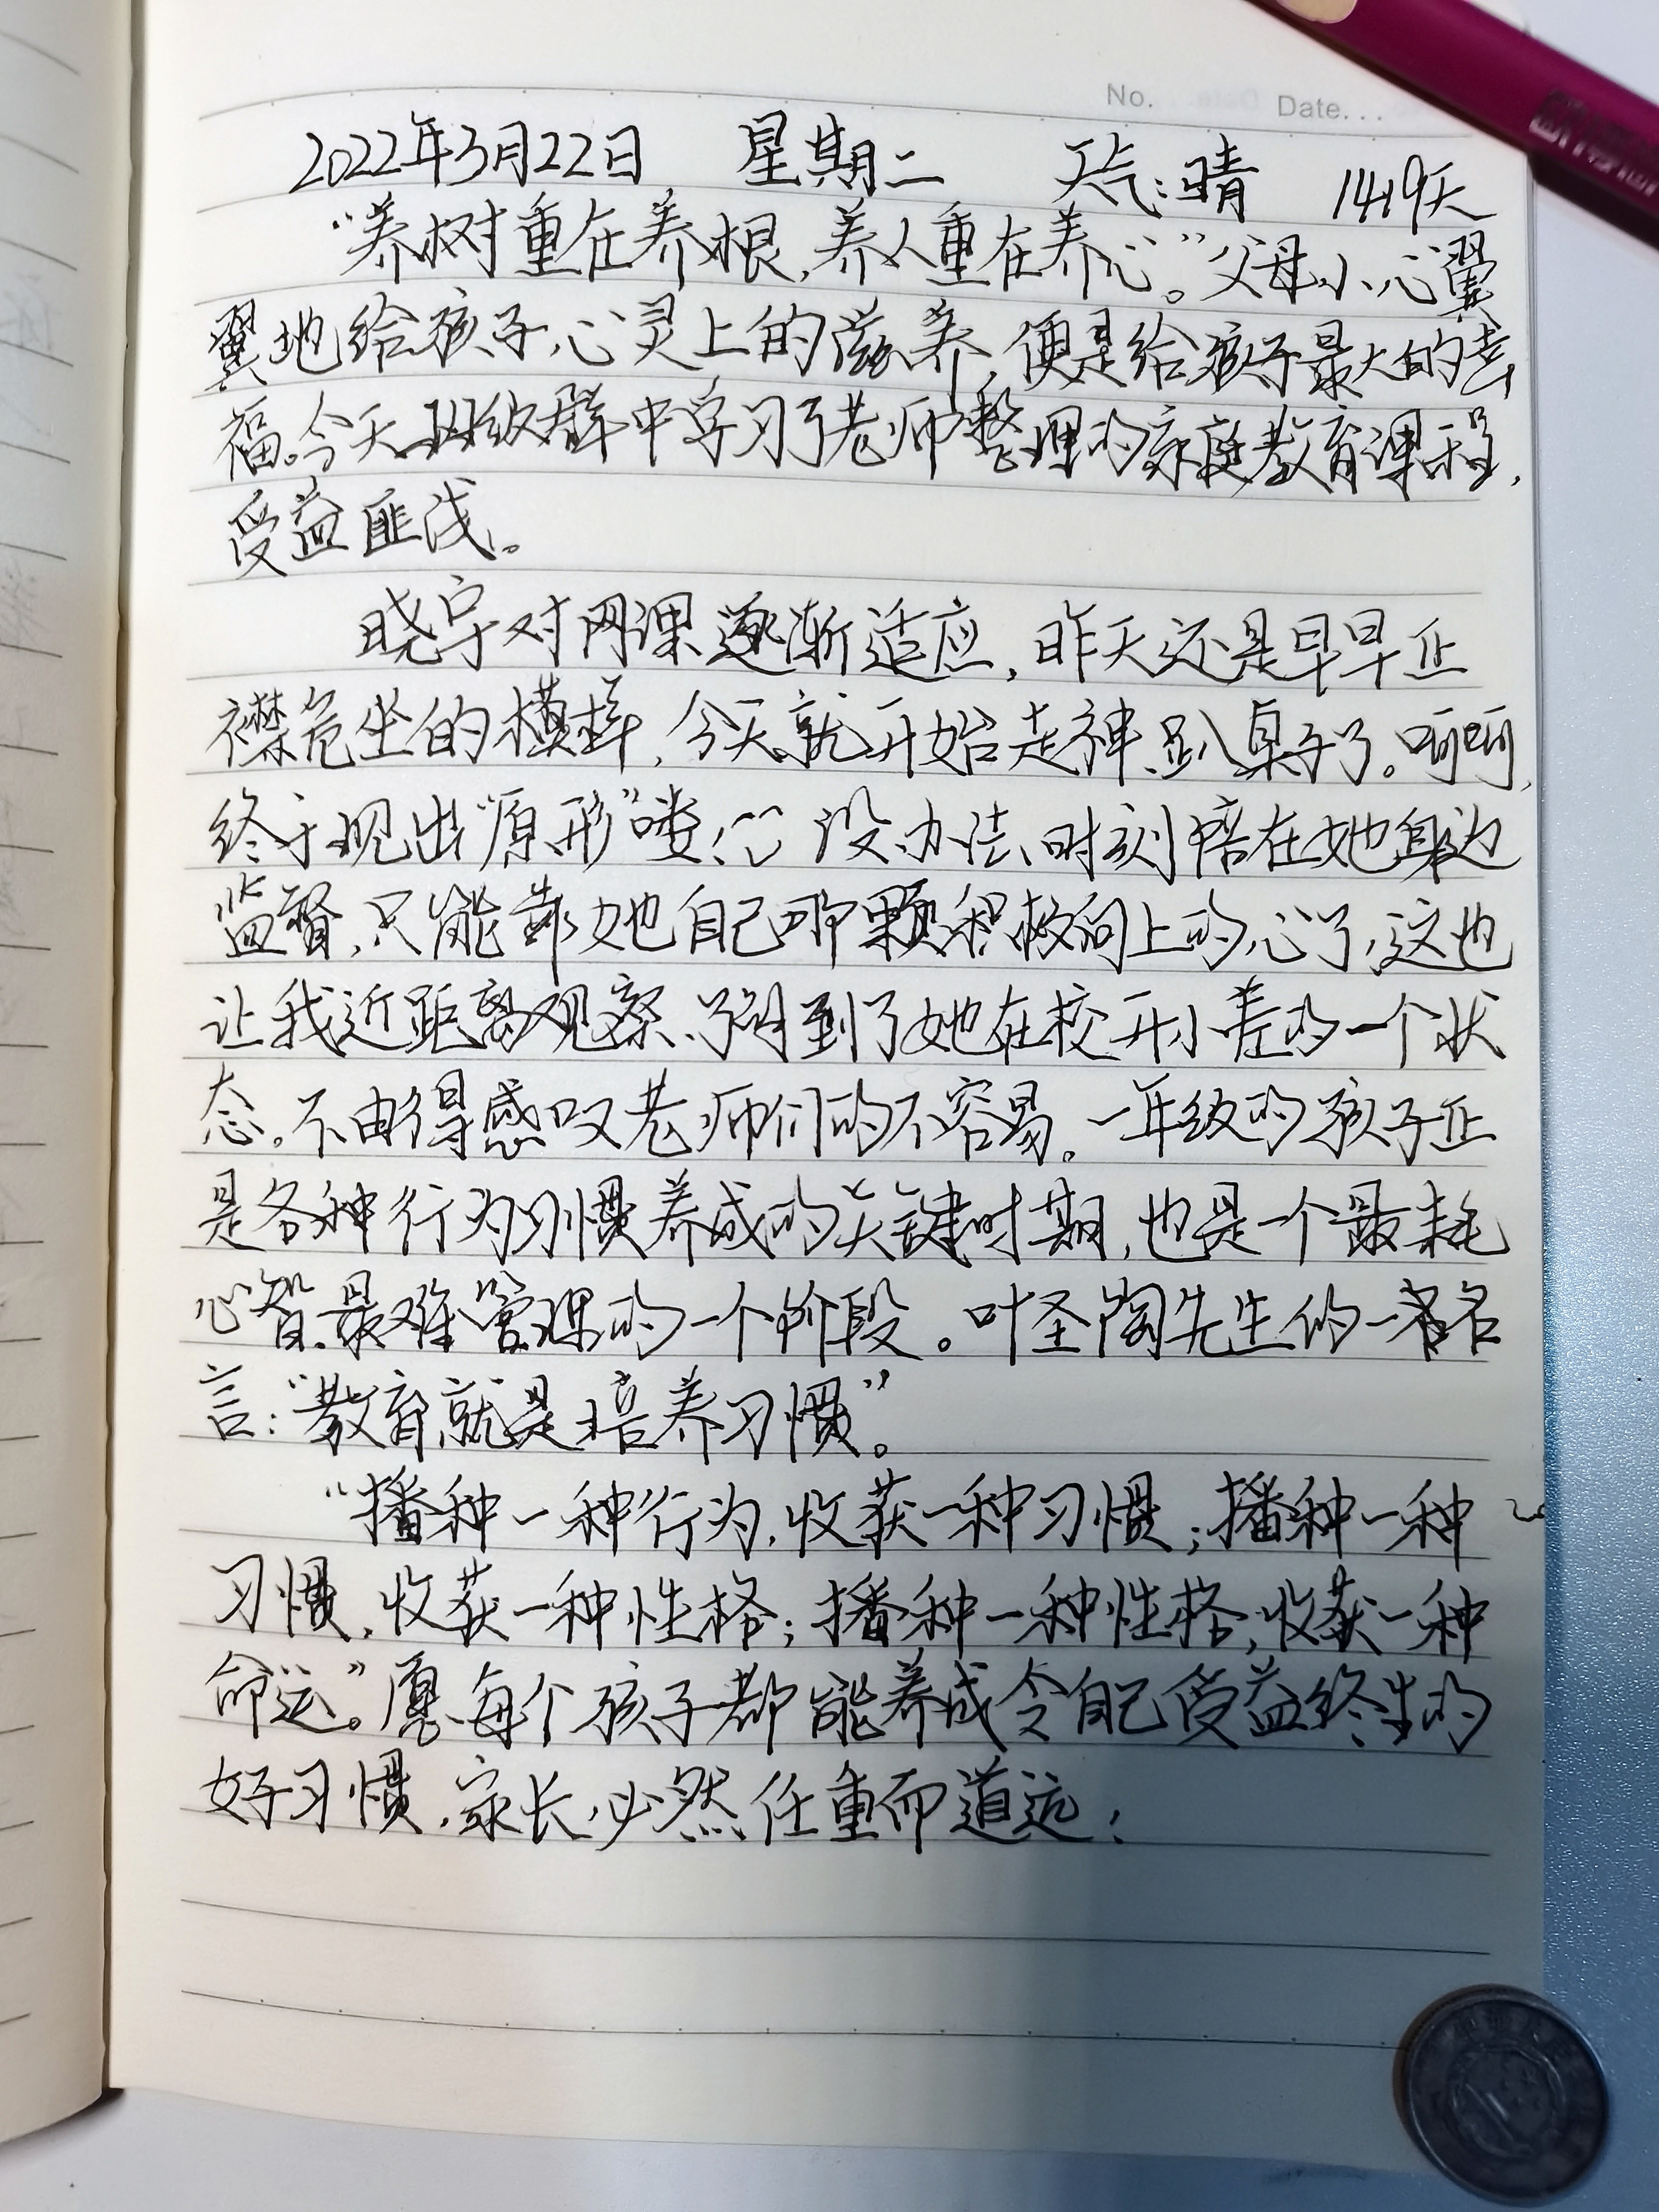 No. Date...
2022年3月22日 星期二 天气:晴 1419天
“养树重在养根,养人重在养心。”父母小心翼
翼地给孩子心灵上的滋养,便是给孩子最大的幸
福。今天班级群中学习了老师整理的家庭教育课程,
受益匪浅。
晓宇对网课逐渐适应,昨天还是早早正
襟危坐的模样,今天就开始走神、趴桌子了。呵呵,
终于现出“原形”喽! 没办法、时刻陪在她身边
监督,只能靠她自己那颗积极向上的心了,这也
让我近距离观察、了解到了她在校开小差的一个状
态。不由得感叹老师们的不容易。一年级的孩子正
是各种行为习惯养成的关键时期,也是一个最耗
心智、最难管理的一个阶段。叶圣陶先生的一名
言:“教育就是培养习惯”。
“播种一种行为,收获一种习惯;播种一种
习惯,收获一种性格;播种一种性格,收获一种
命运”。愿每个孩子都能养成令自己受益终生的
好习惯,家长必然任重而道远!